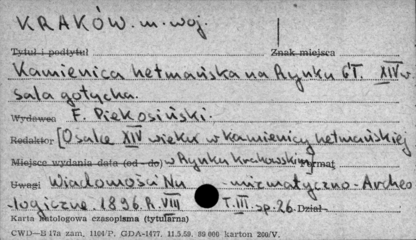 KRAKÓW. m. woj.
Tytuł i podtytuł Znak miejsca
Kamienica hetmańska na Rynku GŁ. XIV w
sala gotycka.
Wydawca F. Piekosiński.
Redaktor [O sali XIV wieku w kamienicy hetmańskiej
Miejsce wydania data (od - do) w Rynku krakowskim] Format
Uwagi Wiadomości Nu -mizmatyczno-Archeo
-logiczne. 1896. R. VIII T. III. sp. 26. Dział
Karta katalogowa czasopisma (tytularna)
CWD—B 17a zam. 1104/P. GDA-1477. 11.5.59. karton 200/V.